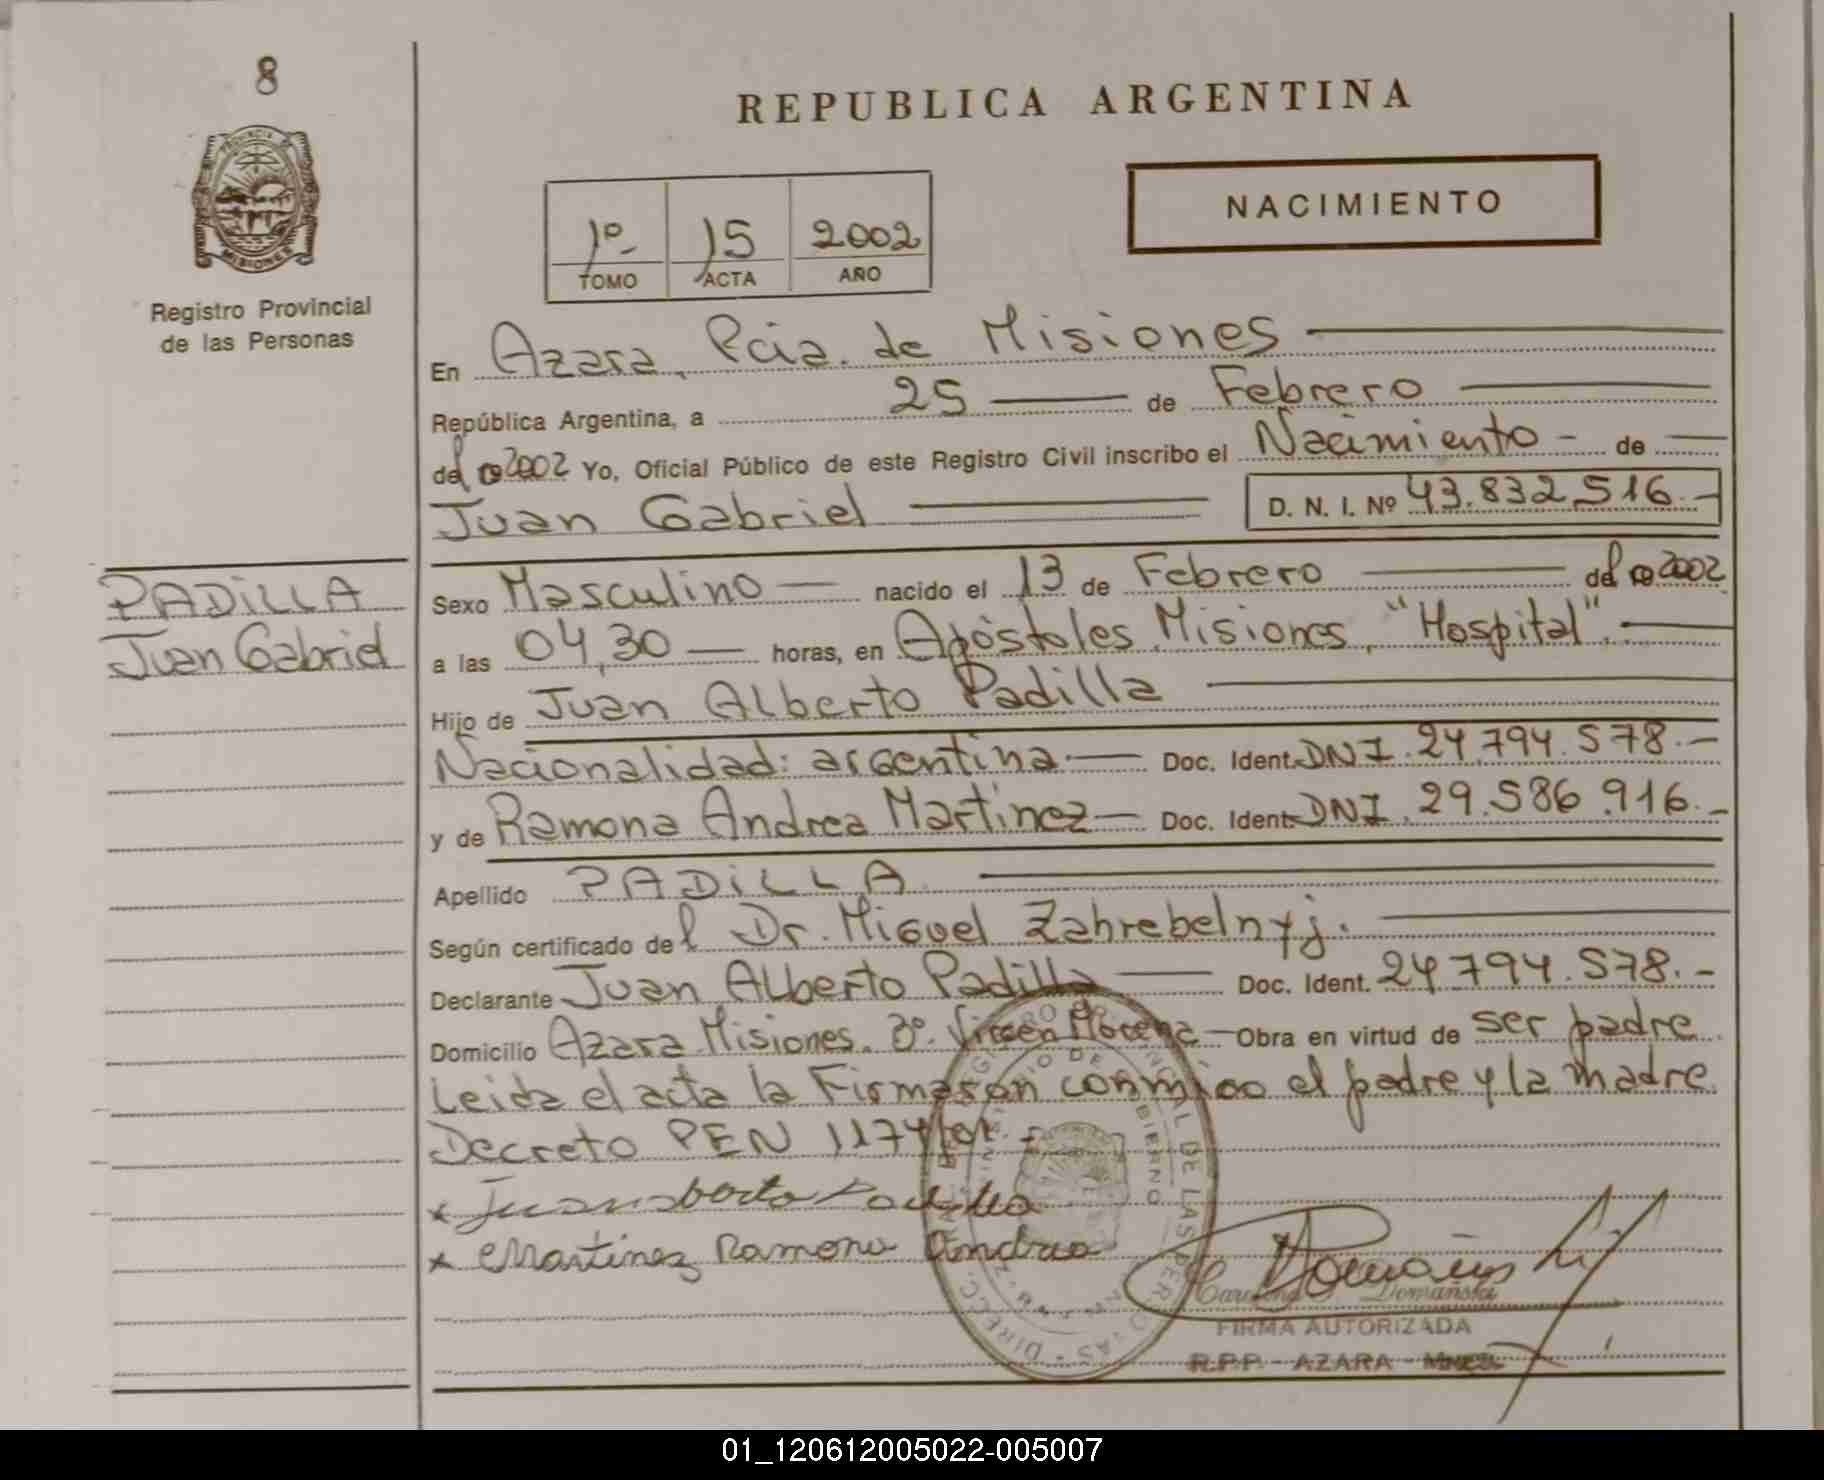 8
REPUBLICA ARGENTINA
PROVINCIA DE
MISIONES
Registro Provincial
de las Personas
1º 15 2002
TOMO ACTA AÑO
NACIMIENTO
En Azara, Pcia. de Misiones
República Argentina, a 25 de Febrero
del 2002 Yo, Oficial Público de este Registro Civil inscribo el Nacimiento - de
Juan Gabriel D. N. I. Nº 43.832.516.-
PADiLLA
Juan Gabriel
Sexo Masculino nacido el 13 de Febrero del 2002
a las 04,30 horas, en Apóstoles, Misiones, "Hospital".
Hijo de Juan Alberto Padilla
Nacionalidad: argentina.- Doc. Ident. DNI. 24.794.578.-
y de Ramona Andrea Martinez Doc. Ident. DNI. 29.586.916.-
Apellido PADiLLA.
Según certificado del Dr. Miguel Zahrebelnyj.
Declarante Juan Alberto Padilla Doc. Ident. 24.794.578.-
Domicilio Azara Misiones. Bº. Virgen Morena Obra en virtud de ser padre.
Leida el acta la Firmaran conmigo el padre y la madre.
Decreto PEN 1174/01.-
x Juan Padilla
x Martinez Ramona Andrea
Domañski
FIRMA AUTORIZADA
R.P.P. - AZARA - Mnes.
01_120612005022-005007